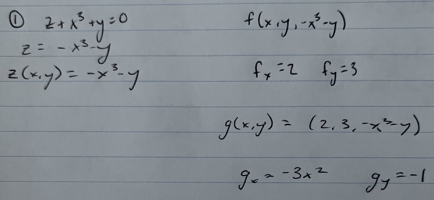 ① z + x³ + y = 0
z = -x³-y
z(x,y) = -x³-y
f(x,y,-x³-y)
fₓ = 2 f_y = 3
g(x,y) = (2, 3, -x³-y)
gₓ = -3x² g_y = -1